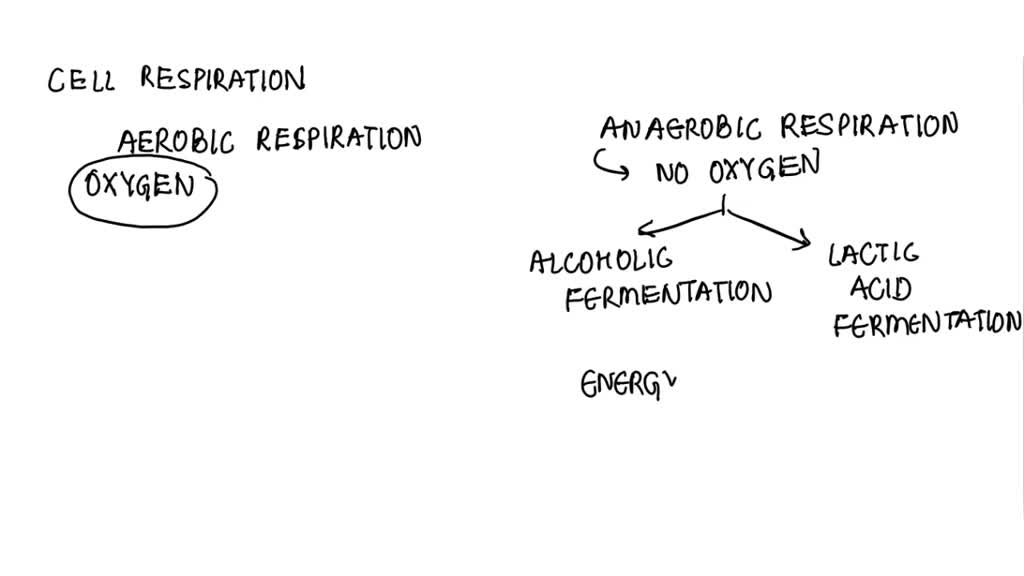 CELL RESPIRATION
AEROBIC RESPIRATION
OXYGEN
ANAEROBIC RESPIRATION
NO OXYGEN
ALCOHOLIC
FERMENTATION
LACTIC
ACID
FERMENTATION
ENERGY